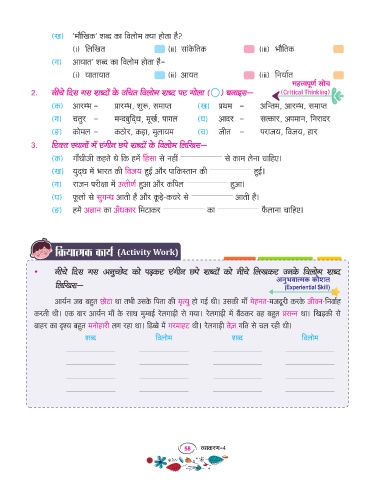 (ख) 'मौखिक' शब्द का विलोम क्या होता है?
(i) लिखित (ii) सांकेतिक (iii) भौतिक
(ग) आयात' शब्द का विलोम होता है–
(i) यातायात (ii) आयत (iii) निर्यात
महत्वपूर्ण सोच
2. नीचे दिए गए शब्दों के उचित विलोम शब्द पर गोला (◯) बनाइए— (Critical Thinking)
(क) आरम्भ – प्रारम्भ, शुरू, समाप्त (ख) प्रथम – अन्तिम, आरम्भ, समाप्त
(ग) चतुर – मन्दबुद्धि, मूर्ख, पागल (घ) आदर – सत्कार, अपमान, निरादर
(ङ) कोमल – कठोर, कड़ा, मुलायम (च) जीत – पराजय, विजय, हार
3. रिक्त स्थानों में रंगीन छपे शब्दों के विलोम लिखिए—
(क) गाँधीजी कहते थे कि हमें हिंसा से नहीं से काम लेना चाहिए।
(ख) युद्ध में भारत की विजय हुई और पाकिस्तान की हुई।
(ग) राजन परीक्षा में उत्तीर्ण हुआ और कपिल हुआ।
(घ) फूलों से सुगन्ध आती है और कूड़े-कचरे से आती है।
(ङ) हमें अज्ञान का अँधकार मिटाकर का फैलाना चाहिए।
क्रियात्मक कार्य (Activity Work)
• नीचे दिए गए अनुच्छेद को पढ़कर रंगीन छपे शब्दों को नीचे लिखकर उनके विलोम शब्द
लिखिए—
अनुभवात्मक कौशल
(Experiential Skill)
आर्यन जब बहुत छोटा था तभी उसके पिता की मृत्यु हो गई थी। उसकी माँ मेहनत-मजदूरी करके जीवन-निर्वाह
करती थी। एक बार आर्यन माँ के साथ मुम्बई रेलगाड़ी से गया। रेलगाड़ी में बैठकर वह बहुत प्रसन्न था। खिड़की से
बाहर का दृश्य बहुत मनोहारी लग रहा था। डिब्बे में गरमाहट थी। रेलगाड़ी तेज़ गति से चल रही थी।
शब्द विलोम शब्द विलोम
58 व्याकरण-4